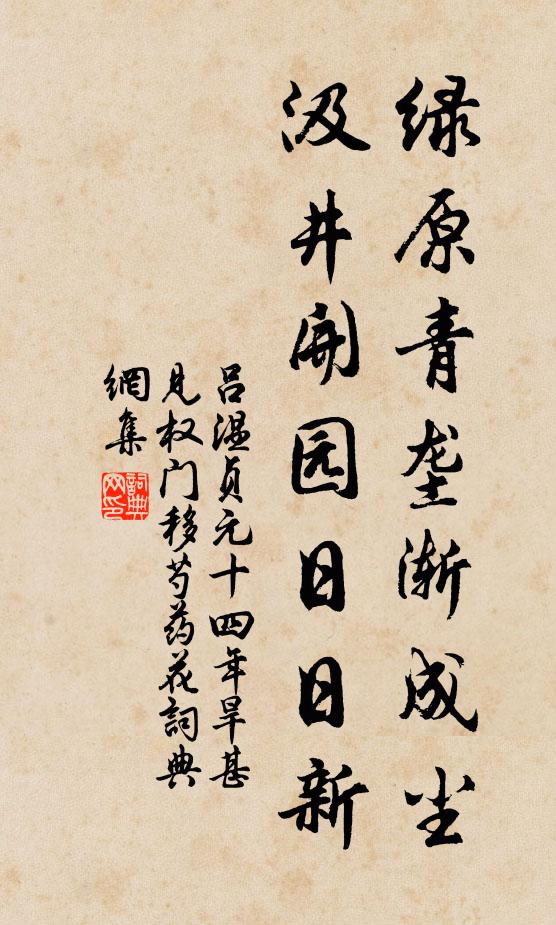 绿原青垄渐成尘
汲井开园日日新
吕温贞元十四年旱甚
见权门移芍药花詞典
網集
詞典
网印